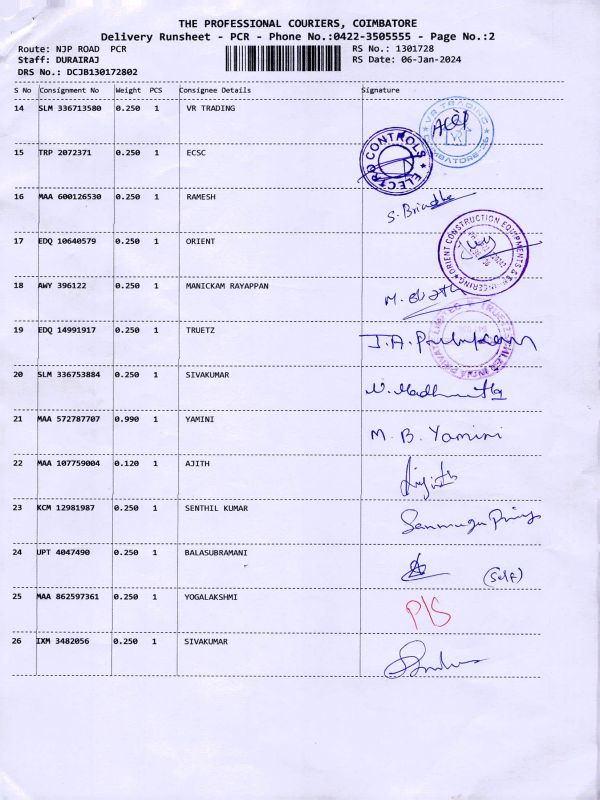 THE PROFESSIONAL COURIERS, COIMBATORE
Delivery Runsheet - PCR - Phone No.:0422-3505555 - Page No.:2
Route: NJP ROAD PCR RS No.: 1301728
Staff: DURAIRAJ RS Date: 06-Jan-2024
DRS No.: DCJB130172802
S No Consignment No Weight PCS Consignee Details Signature
14 SLM 336713580 0.250 1 VR TRADING
VR TRADING
15 TRP 2072371 0.250 1 ECSC
ELECTRO CONTROLS
16 MAA 600126530 0.250 1 RAMESH
17 EDQ 10640579 0.250 1 ORIENT
ORIENT CONSTRUCTION EQUIPMENTS &
18 AWY 396122 0.250 1 MANICKAM RAYAPPAN
19 EDQ 14991917 0.250 1 TRUETZ
20 SLM 336753884 0.250 1 SIVAKUMAR
21 MAA 572787707 0.990 1 YAMINI M. B. Yamini
22 MAA 107759004 0.120 1 AJITH
23 KCM 12981987 0.250 1 SENTHIL KUMAR
24 UPT 4047490 0.250 1 BALASUBRAMANI (Self)
25 MAA 862597361 0.250 1 YOGALAKSHMI P/S
26 IXM 3482056 0.250 1 SIVAKUMAR